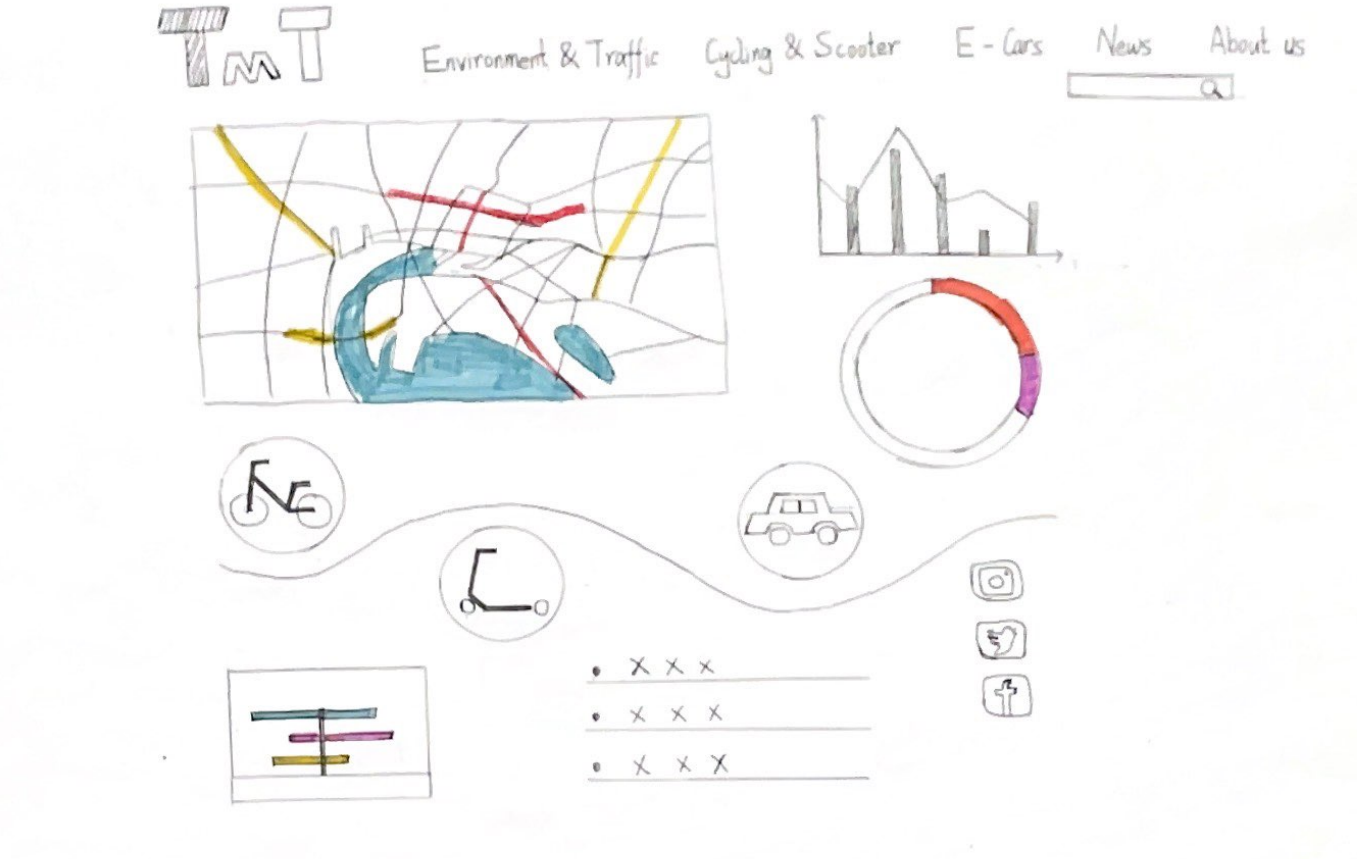 TMT
Environment & Traffic Cycling & Scooter E-Cars News About us
x x x
x x x
x x x